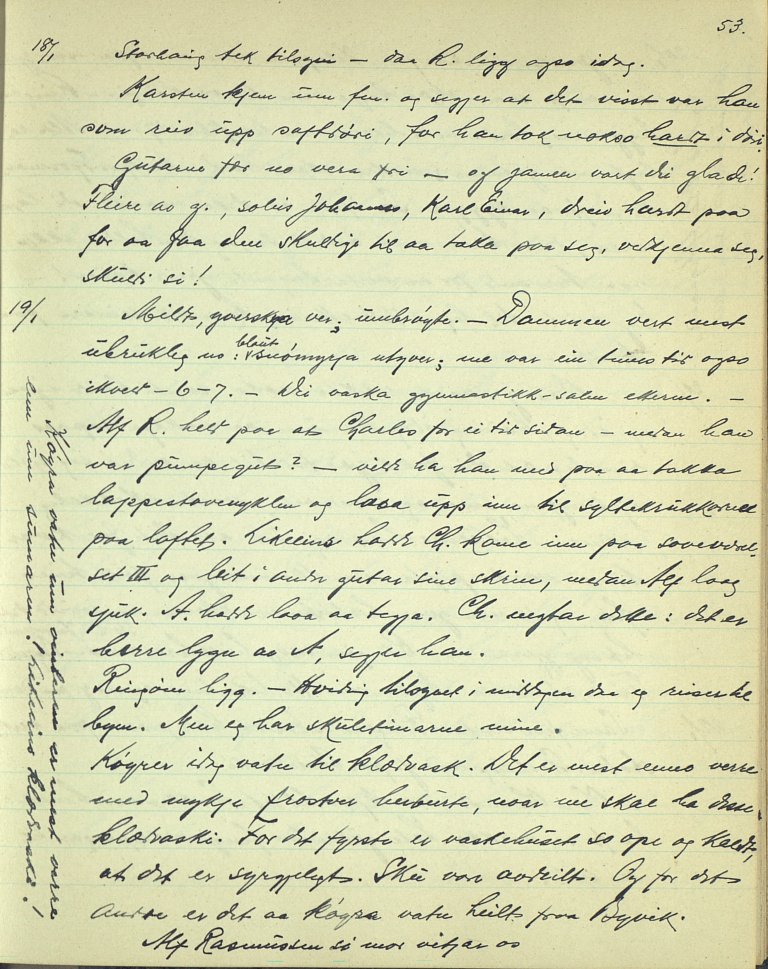 53.
18/1 Storhaug tek tilsyn — daa R. ligg ogso idag.
Karsten kjem inn fm. og segjer at det visst var han
som reiv upp saftdöri, for han tok nokso hardt i döri.
Gutarne fær no vera fri — og jamen vart dei glade!
Fleire av g., solis Johannes, Karl Einar, dreiv hardt paa
for aa faa den skuldige til aa taka paa seg, vedkjenna seg,
skuldi si!
19/1 Mildt, ver; umbröyte. — Dammen vert mest
ubrukleg no: blaut snömyrja utyver; me var ein times tid ogso
ikveld — 6-7. — Dei vaska gymnastikk-salen etterm. —
Alf R. held paa at Charles for ei tid sidan — medan han
var pumpegut? — vilde ha han med paa aa takka
lappestovenyklen og laasa upp inn til syltekrukkorne
paa loftet. Likeeins hadde Ch. kome inn paa soveværel-
set III og leit i andre gutar sine skrin, medan Alf laag
sjuk. A. hadde lova aa tegja. Ch. negtar dette: det er
berre lygn av A, segjer han.
Ringöm ligg. — Hviding tilsynet i middagen daa eg reiser til
byen. Men eg har skuletimarne mine.
Köyrer idag vatn til klædvask. Det er mest enno verre
med mykje frostver herburte, naar me skal ha desse
klædvaski. For det fyrste er vaskehuset so ope og kaldt,
at det er syrgjelegt. Sku vore avdeilt. Og for det
andre er det aa köyra vatn heilt fraa Byvik.
Alf Rasmussen si mor vitjar os
Köyra vatn um vinteren er mest verre
enn um sumaren! Likeeins klædvask!